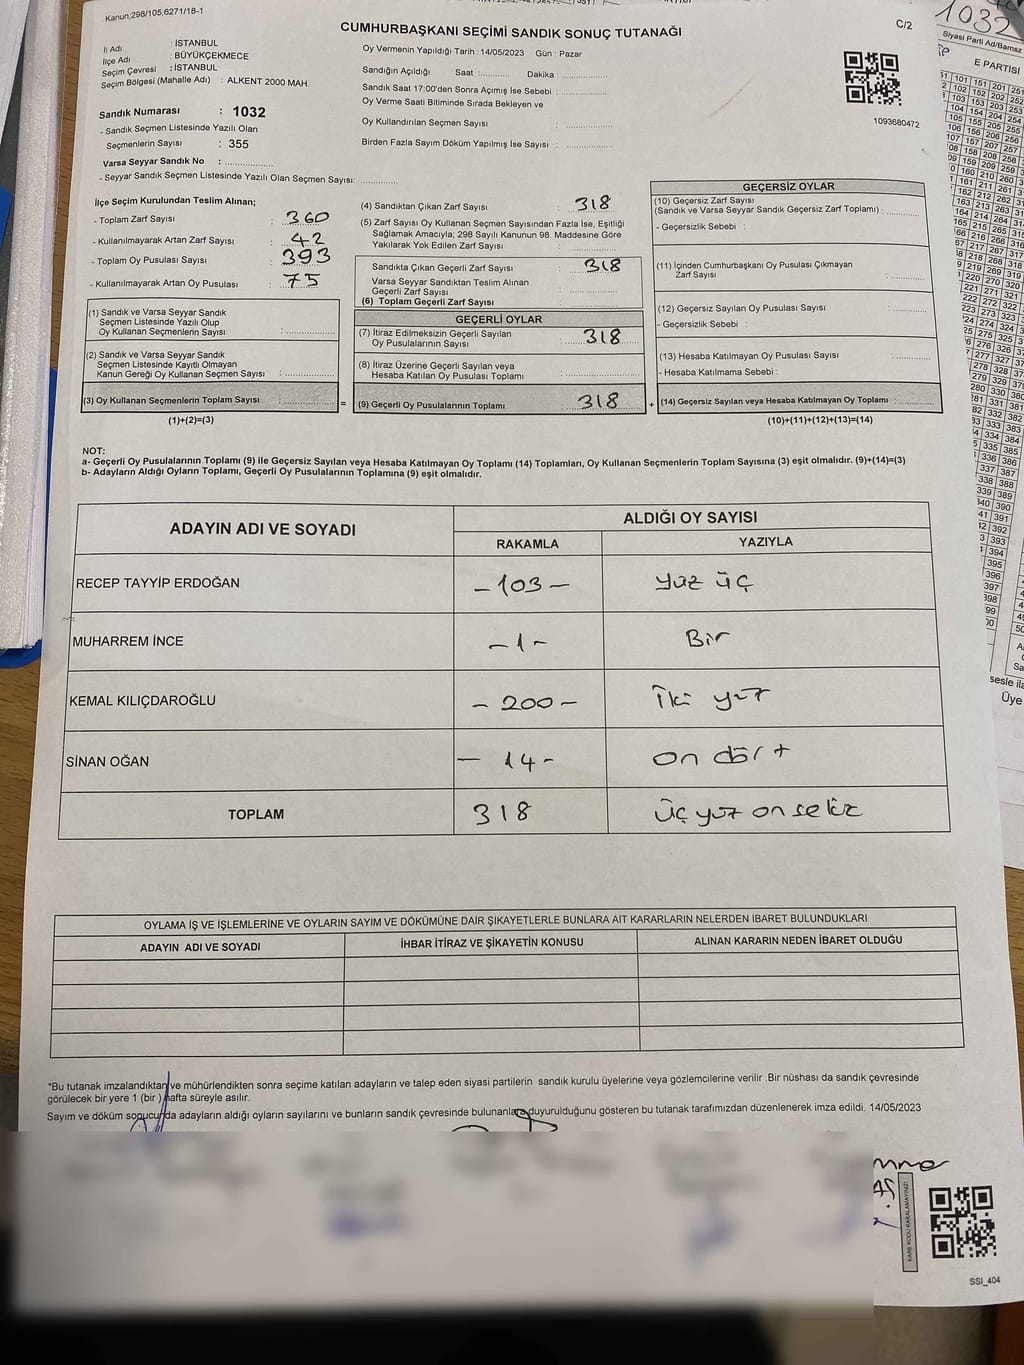 Kanun;298/105,6271/18-1
CUMHURBAŞKANI SEÇİMİ SANDIK SONUÇ TUTANAĞI
C/2
İli Adı : İSTANBUL
İlçe Adı : BÜYÜKÇEKMECE
Seçim Çevresi : İSTANBUL
Seçim Bölgesi (Mahalle Adı) : ALKENT 2000 MAH.
Sandık Numarası : 1032
- Sandık Seçmen Listesinde Yazılı Olan
Seçmenlerin Sayısı : 355
Varsa Seyyar Sandık No :
- Seyyar Sandık Seçmen Listesinde Yazılı Olan Seçmen Sayısı:
Oy Vermenin Yapıldığı Tarih : 14/05/2023 Gün : Pazar
Sandığın Açıldığı Saat : Dakika :
Sandık Saat 17:00'den Sonra Açımış İse Sebebi :
Oy Verme Saati Bitiminde Sırada Bekleyen ve
Oy Kullandırılan Seçmen Sayısı :
Birden Fazla Sayım Döküm Yapılmış İse Sayısı :
1093680472
İlçe Seçim Kurulundan Teslim Alınan;
- Toplam Zarf Sayısı : 360
- Kullanılmayarak Artan Zarf Sayısı : 42
- Toplam Oy Pusulası Sayısı : 393
- Kullanılmayarak Artan Oy Pusulası : 75
(1) Sandık ve Varsa Seyyar Sandık
Seçmen Listesinde Yazılı Olup
Oy Kullanan Seçmenlerin Sayısı :
(2) Sandık ve Varsa Seyyar Sandık
Seçmen Listesinde Kayıtlı Olmayan
Kanun Gereği Oy Kullanan Seçmen Sayısı :
(3) Oy Kullanan Seçmenlerin Toplam Sayısı :
(1)+(2)=(3)
(4) Sandıktan Çıkan Zarf Sayısı : 318
(5) Zarf Sayısı Oy Kullanan Seçmen Sayısından Fazla İse, Eşitliği
Sağlamak Amacıyla; 298 Sayılı Kanunun 98. Maddesine Göre
Yakılarak Yok Edilen Zarf Sayısı :
Sandıkta Çıkan Geçerli Zarf Sayısı : 318
Varsa Seyyar Sandıktan Teslim Alınan
Geçerli Zarf Sayısı :
(6) Toplam Geçerli Zarf Sayısı :
GEÇERLİ OYLAR
(7) İtiraz Edilmeksizin Geçerli Sayılan
Oy Pusulalarının Sayısı : 318
(8) İtiraz Üzerine Geçerli Sayılan veya
Hesaba Katılan Oy Pusulası Toplamı :
= (9) Geçerli Oy Pusulalarının Toplamı : 318 +
GEÇERSİZ OYLAR
(10) Geçersiz Zarf Sayısı
(Sandık ve Varsa Seyyar Sandık Geçersiz Zarf Toplamı) :
- Geçersizlik Sebebi :
(11) İçinden Cumhurbaşkanı Oy Pusulası Çıkmayan
Zarf Sayısı :
(12) Geçersiz Sayılan Oy Pusulası Sayısı :
- Geçersizlik Sebebi :
(13) Hesaba Katılmayan Oy Pusulası Sayısı :
- Hesaba Katılmama Sebebi :
(14) Geçersiz Sayılan veya Hesaba Katılmayan Oy Toplamı :
(10)+(11)+(12)+(13)=(14)
NOT:
a- Geçerli Oy Pusulalarının Toplamı (9) ile Geçersiz Sayılan veya Hesaba Katılmayan Oy Toplamı (14) Toplamları, Oy Kullanan Seçmenlerin Toplam Sayısına (3) eşit olmalıdır. (9)+(14)=(3)
b- Adayların Aldığı Oyların Toplamı, Geçerli Oy Pusulalarının Toplamına (9) eşit olmalıdır.
ADAYIN ADI VE SOYADI
ALDIĞI OY SAYISI
RAKAMLA YAZIYLA
RECEP TAYYİP ERDOĞAN - 103 - yüz üç
MUHARREM İNCE - 1 - Bir
KEMAL KILIÇDAROĞLU - 200 - İki yüz
SİNAN OĞAN - 14 - on dört
TOPLAM 318 üç yüz on sekiz
OYLAMA İŞ VE İŞLEMLERİNE VE OYLARIN SAYIM VE DÖKÜMÜNE DAİR ŞİKAYETLERLE BUNLARA AİT KARARLARIN NELERDEN İBARET BULUNDUKLARI
ADAYIN ADI VE SOYADI İHBAR İTİRAZ VE ŞİKAYETİN KONUSU ALINAN KARARIN NEDEN İBARET OLDUĞU
*Bu tutanak imzalandıktan ve mühürlendikten sonra seçime katılan adayların ve talep eden siyasi partilerin sandık kurulu üyelerine veya gözlemcilerine verilir .Bir nüshası da sandık çevresinde
görülecek bir yere 1 (bir ) hafta süreyle asılır.
Sayım ve döküm sonucunda adayların aldığı oyların sayılarını ve bunların sandık çevresinde bulunanlara duyurulduğunu gösteren bu tutanak tarafımızdan düzenlenerek imza edildi. 14/05/2023
KARE KODU KARALAMAYINIZ!
SSİ_404
1032
Siyasi Parti Ad/Bamsz
E PARTİSİ